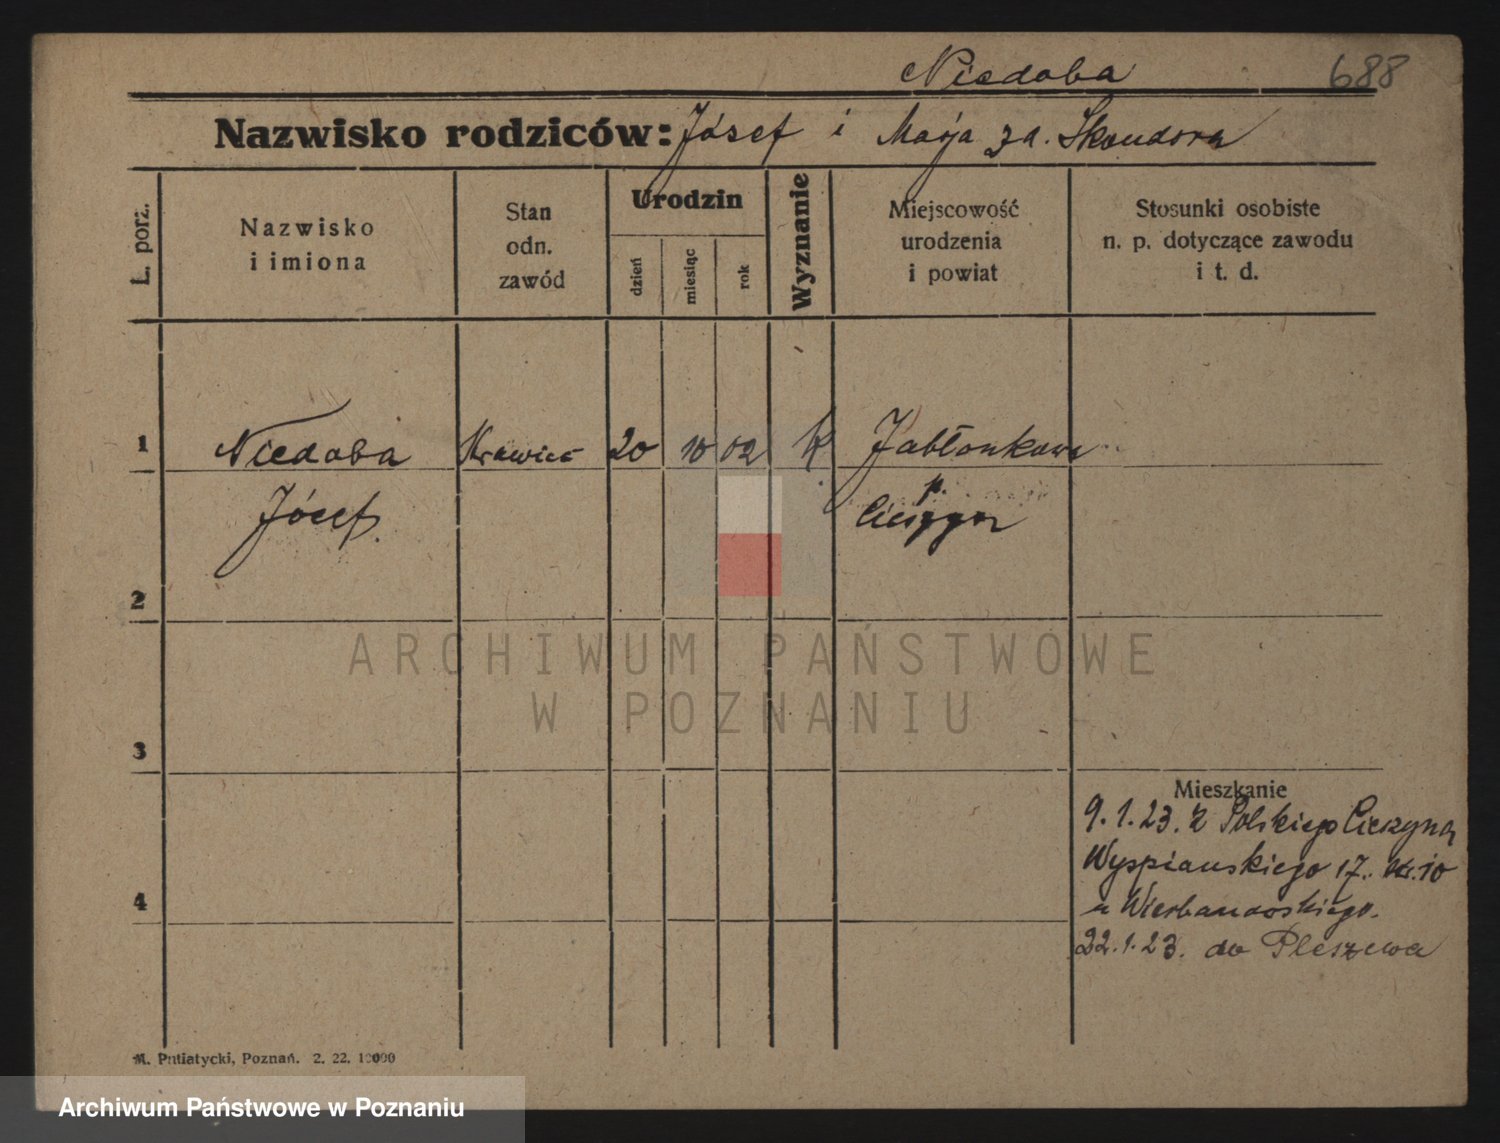 Niedoba
688
Nazwisko rodziców: Józef i Marja zd. Skandora
L. porz.
Nazwisko i imiona
Stan odn. zawód
Urodzin
dzień
miesiąc
rok
Wyznanie
Miejscowość urodzenia i powiat
Stosunki osobiste n. p. dotyczące zawodu i t. d.
1
Niedoba
Krawiec
20
10
02
K
Jabłonkowa
Józef.
p.
2
3
4
Mieszkanie
9.1.23. z Polskiego Cieszyna
Wyspiańskiego 17. 10
u
22.1.23. do Pleszewa
M. Putiatycki, Poznań. 2. 22. 10000
ARCHIWUM PAŃSTWOWE
W POZNANIU
Archiwum Państwowe w Poznaniu